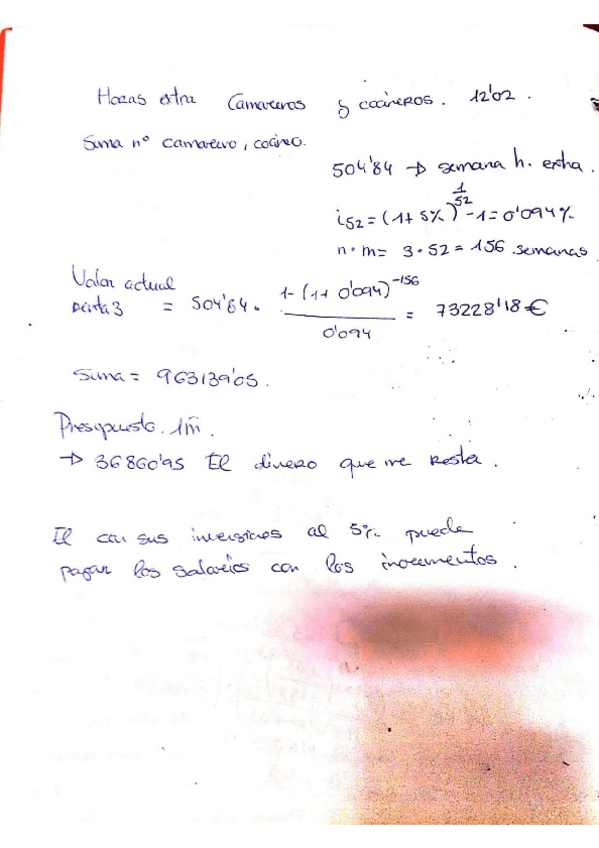 Horas extra Camareros y cocineros. 12'02.
Suma nº camarero, cocinero.
504'84 → semana h. extra.
i52 = (1 + 5%)^(1/52) - 1 = 0'094%
n·m = 3·52 = 156 semanas
Valor actual
renta 3 = 504'84 · (1 - (1 + 0'094)^-156) / 0'094 = 73228'18€
Suma = 963139'05.
Presupuesto. 1m.
→ 36860'95 El dinero que me resta.
El con sus inversiones al 5% puede
pagar los salarios con los incrementos.